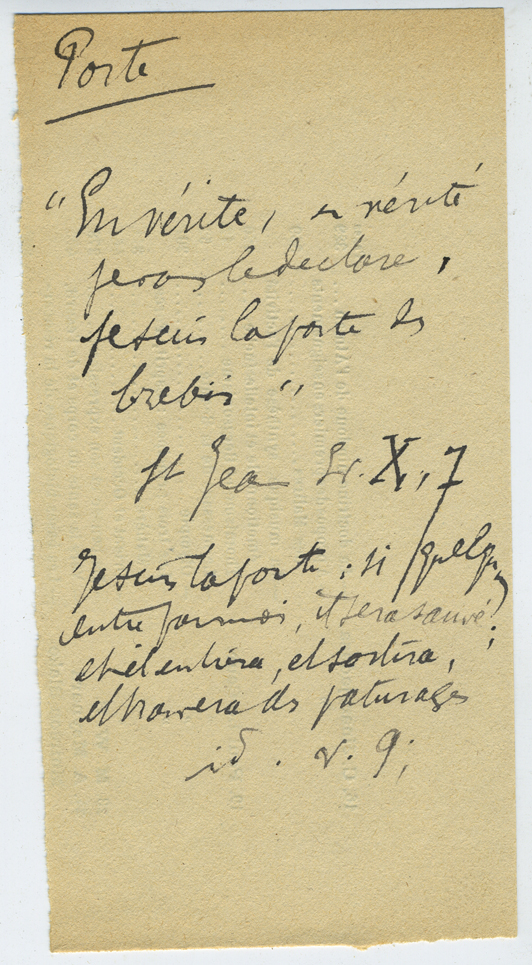 Porte
"En vérité, en vérité
je vous le déclare,
je suis la porte des
brebis"
St Jean Ev. X, 7
Je suis la porte : si quelqu'un
entre par moi, il sera sauvé;
et il entrera, et sortira,
et trouvera des paturages
id. v. 9;